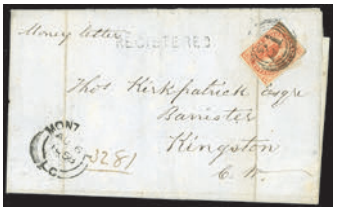 Money letter
REGISTERED
Thos. Kirkpatrick Esqre
Barrister
Kingston
C. W.
MONT
AU 6
L.C.
3281